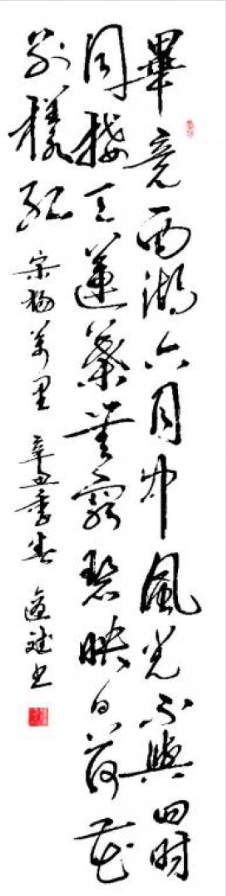 畢竟西湖六月中風光不與四時
同接天蓮葉無窮碧映日荷花
别樣紅 宋楊萬里 辛丑季春 书